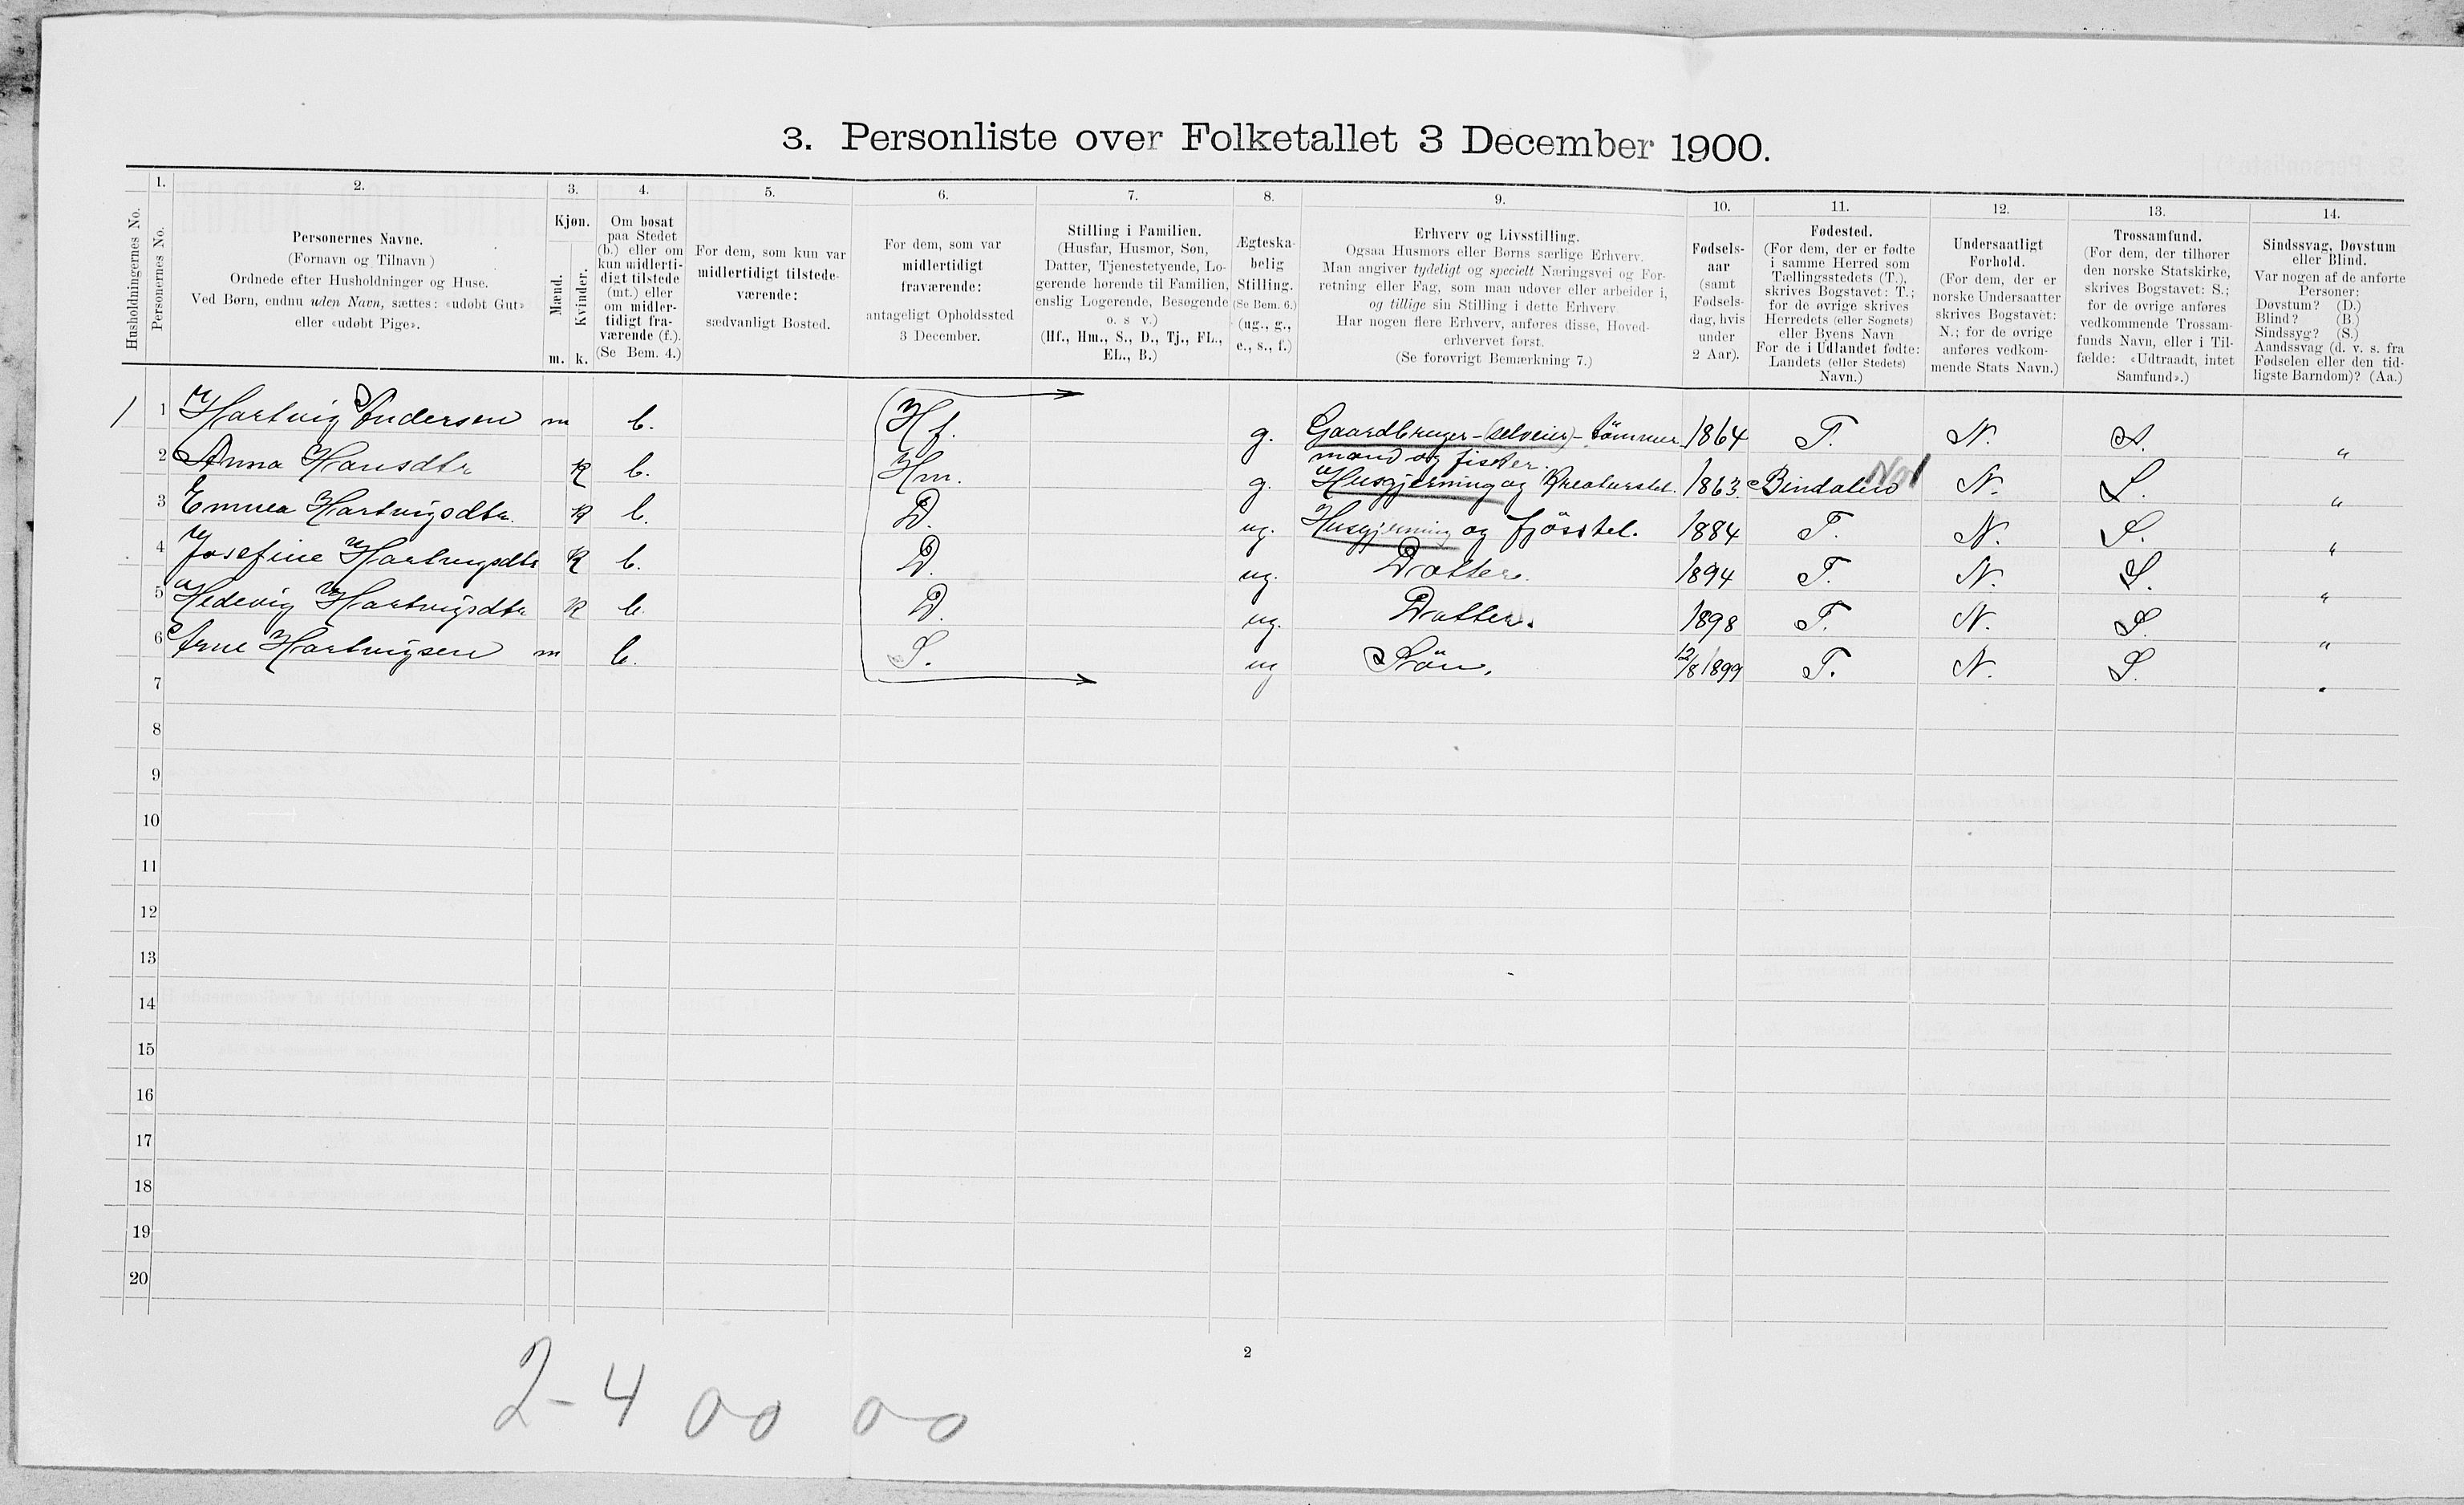 3. Personliste over Folketallet 3 December 1900.
1. 2. 3. 4. 5. 6. 7. 8. 9. 10. 11. 12. 13. 14.
Husholdningernes No.
Personernes No.
Personernes Navne.
(Fornavn og Tilnavn)
Ordnede efter Husholdninger og Huse.
Ved Børn, endnu uden Navn, sættes: «udøbt Gut»
eller «udøbt Pige».
Kjøn.
Mænd.
Kvinder.
m. k.
Om bosat
paa Stedet
(b.) eller om
kun midlerti-
digt tilstede
(mt.) eller
om midler-
tidigt fra-
værende (f.).
(Se Bem. 4.)
For dem, som kun var
midlertidigt tilstede-
værende:
sædvanligt Bosted.
For dem, som var
midlertidigt
fraværende:
antageligt Opholdssted
3 December.
Stilling i Familien.
(Husfar, Husmor, Søn,
Datter, Tjenestetyende, Lo-
gerende hørende til Familien,
enslig Logerende, Besøgende
o. s v.)
(Hf., Hm., S., D., Tj., FL.,
EL., B.)
Ægteska-
belig
Stilling.
(Se Bem. 6.)
(ug., g.,
e., s., f.)
Erhverv og Livsstilling.
Ogsaa Husmors eller Børns særlige Erhverv.
Man angiver tydeligt og specielt Næringsvei og For-
retning eller Fag, som man udøver eller arbeider i,
og tillige sin Stilling i dette Erhverv
Har nogen flere Erhverv, anføres disse, Hoved-
erhvervet først.
(Se forøvrigt Bemærkning 7.)
Fødsels-
aar
(samt
Fødsels-
dag, hvis
under
2 Aar).
Fødested.
(For dem, der er fødte
i samme Herred som
Tællingsstedets (T.),
skrives Bogstavet: T.;
for de øvrige skrives
Herredets (eller Sognets)
eller Byens Navn
For de i Udlandet fødte:
Landets (eller Stedets)
Navn.)
Undersaatligt
Forhold.
(For dem, der er
norske Undersaatter
skrives Bogstavet:
N.; for de øvrige
anføres vedkom-
mende Stats Navn.)
Trossamfund.
(For dem, der tilhører
den norske Statskirke,
skrives Bogstavet: S.;
for de øvrige anføres
vedkommende Trossam-
funds Navn, eller i Til-
fælde: «Udtraadt, intet
Samfund».)
Sindssvag, Døvstum
eller Blind.
Var nogen af de anførte
Personer:
Døvstum? (D.)
Blind? (B.)
Sindssyg? (S.)
Aandssvag (d. v. s. fra
Fødselen eller den tid-
ligste Barndom)? (Aa.)
1 1 Hartvig Andersen m b. Hf. g. Gaardbruger-(selveier)-tømmer 1864 T. N. S. "
mand og fisker.
2 Anna Hansdtr k b. Hm. g. Husgjerning og Kreaturstel. 1863. Bindalen Nol N. S. "
3 Emma Hartvigsdtr. k b. D. ug. Husgjerning og fjösstel. 1884 T. N. S. "
4 Josefine Hartvigsdtr k b. D. ug. Datter. 1894 T. N. S. "
5 Hedevig Hartvigsdtr k b. D. ug. Datter. 1898 T. N. S. "
6 Arne Hartvigsen m b. S. ug Sön. 12/8 1899 T. N. S. "
7
8
9
10
11
12
13
14
15
16
17
18
19
20
2
2-4 0-0 0-0